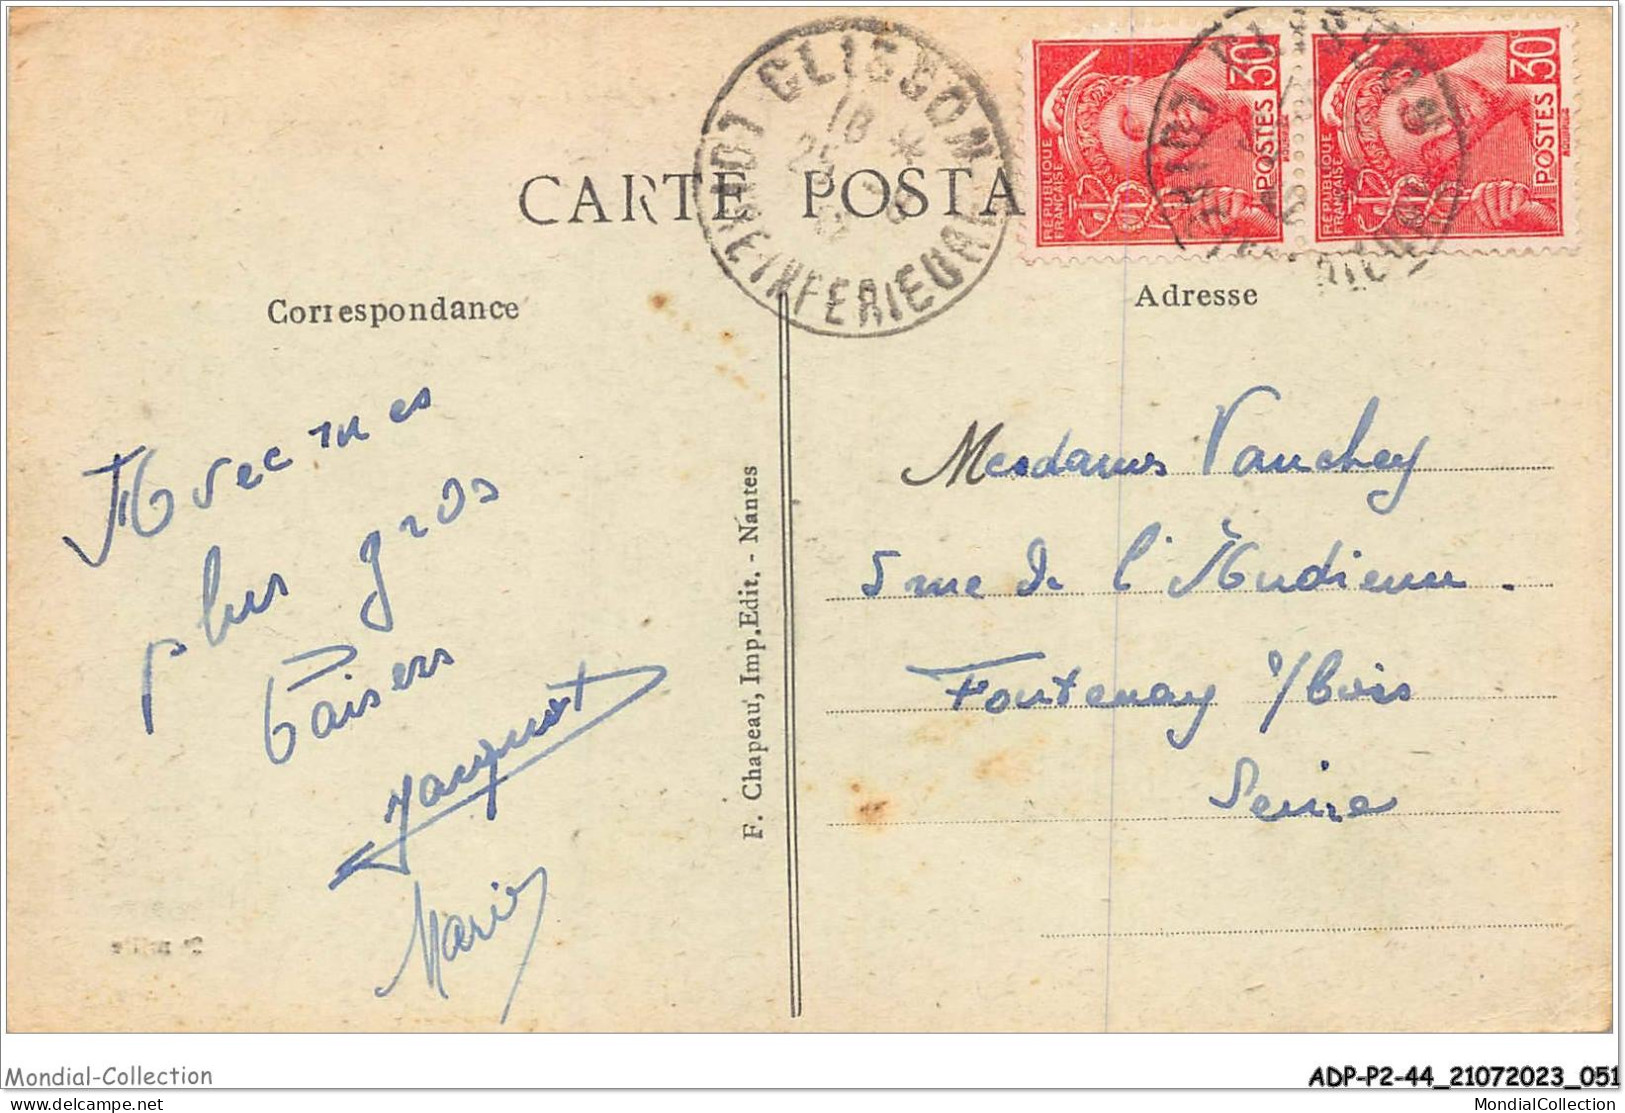 CARTE POSTA
CLISSON
INFERIEURE
18
25
RÉPUBLIQUE
FRANÇAISE
30
POSTES
RÉPUBLIQUE
FRANÇAISE
30
POSTES
Correspondance
Adresse
Avec mes
plus gros
baisers
Jacquot
Marie
F. Chapeau, Imp.Edit. - Nantes
Mesdames Vauchey
5 rue de l'Audience.
Fontenay s/bois
Seine
Mondial-Collection
ADP-P2-44_21072023_051
delcampe.net
MondialCollection